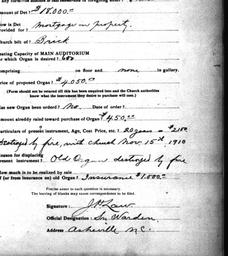 amount of Debt $18,000.=
How is Debt provided for? mortgage on property.
Church built of Brick
Seating Capacity of MAIN AUDITORIUM
which Organ is desired 600
comprising on floor and none in gallery.
Price of proposed Organ $4,050.00
(Form should not be returned till this has been inquired into and the Church authorities
know what the instrument they desire to purchase will cost.)
new Organ been ordered? No. Date of order.
Amount already raised toward purchase of Organ $450.00
Particulars of present instrument, Age, Cost Price, etc. 20 years = $2150
destroyed by fire, with church Nov. 15th, 1910
Reason for displacing
present instrument Old Organ destroyed by fire
How much is to be realized by sale
(or from insurance on) old Organ? Insurance $1,000.=
Precise answer to each question is necessary.
The leaving of blanks may cause correspondence to be filed.
Signature, J.H. Law
Official Designation, Sr. Warden.
Address Asheville N.C.